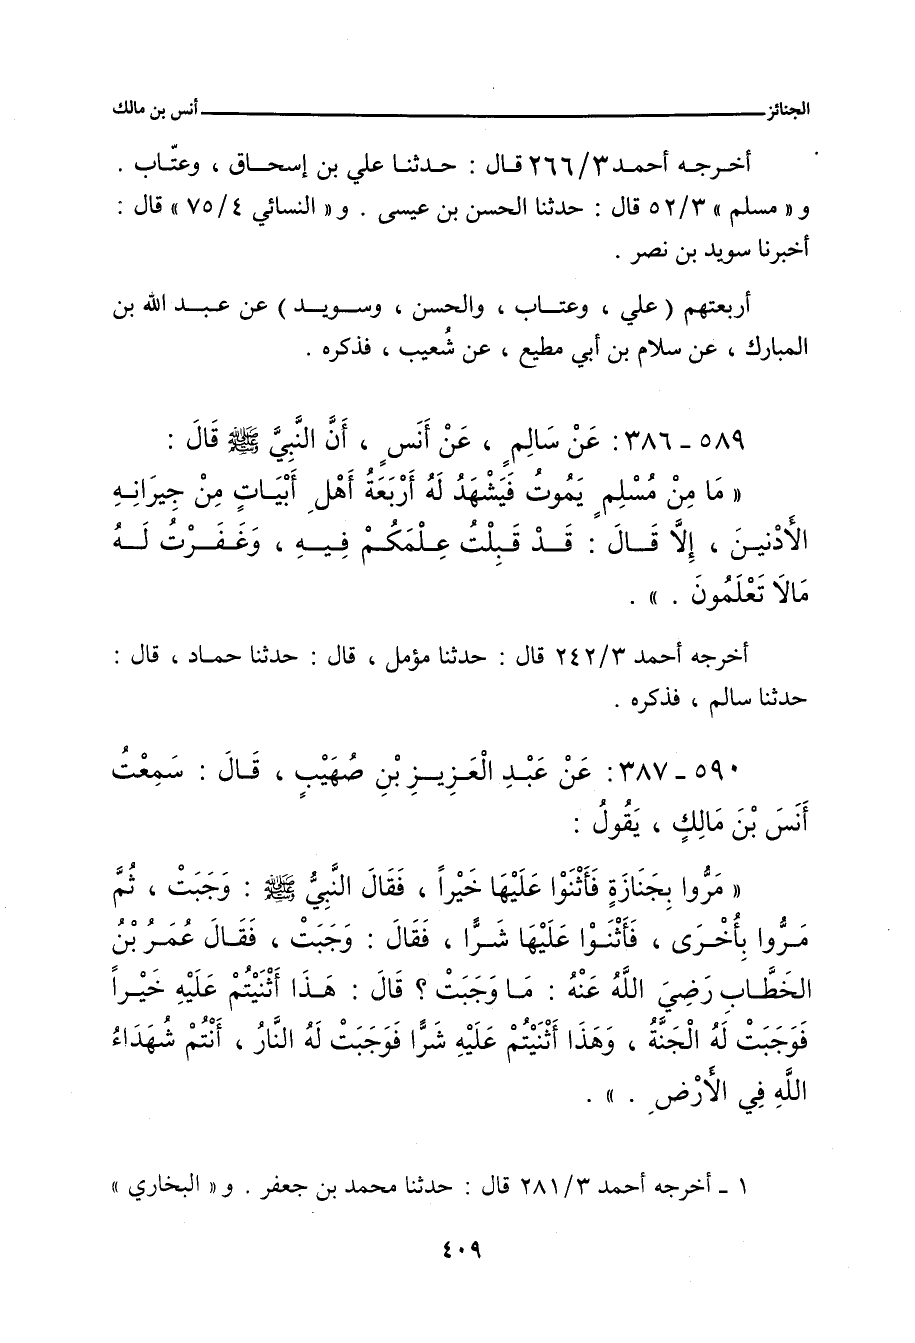 الجنائز ــــــــــــ أنس بن مالك
أخرجه أحمد ٢٦٦/٣ قال : حدثنا علي بن إسحاق ، وعتّاب .
و« مسلم » ٥٢/٣ قال : حدثنا الحسن بن عيسى . و« النسائي ٧٥/٤ » قال :
أخبرنا سويد بن نصر .
أربعتهم ( علي ، وعتاب ، والحسن ، وسويد ) عن عبد الله بن
المبارك ، عن سلام بن أبي مطيع ، عن شُعيب ، فذكره .
٥٨٩ ـ ٣٨٦: عَنْ سَالِمٍ ، عَنْ أَنَسٍ ، أَنَّ النَّبِيَّ ﷺ قَالَ :
« مَا مِنْ مُسْلِمٍ يَمُوتُ فَيَشْهَدُ لَهُ أَرْبَعَةُ أَهْلِ أَبْيَاتٍ مِنْ جِيرَانِهِ
الأَدْنَينَ ، إِلَّا قَالَ : قَدْ قَبِلْتُ عِلْمَكُمْ فِيهِ ، وَغَفَرْتُ لَهُ
مَالَا تَعْلَمُونَ . » .
أخرجه أحمد ٢٤٢/٣ قال : حدثنا مؤمل ، قال : حدثنا حماد ، قال :
حدثنا سالم ، فذكره .
٥٩٠ ـ ٣٨٧: عَنْ عَبْدِ الْعَزِيزِ بْنِ صُهَيْبٍ ، قَالَ : سَمِعْتُ
أَنَسَ بْنَ مَالِكٍ ، يَقُولُ :
« مَرُّوا بِجَنَازَةٍ فَأَثْنَوْا عَلَيْهَا خَيْراً ، فَقَالَ النَّبِيُّ ﷺ : وَجَبَتْ ، ثُمَّ
مَرُّوا بِأُخْرَى ، فَأَثْنَوْا عَلَيْهَا شَرًّا ، فَقَالَ : وَجَبَتْ ، فَقَالَ عُمَرُ بْنُ
الخَطَّابِ رَضِيَ اللَّهُ عَنْهُ : مَا وَجَبَتْ ؟ قَالَ : هَذَا أَثْنَيْتُمْ عَلَيْهِ خَيْراً
فَوَجَبَتْ لَهُ الْجَنَّةُ ، وَهَذَا أَثْنَيْتُمْ عَلَيْهِ شَرًّا فَوَجَبَتْ لَهُ النَّارُ ، أَنْتُمْ شُهَدَاءُ
اللَّهِ فِي الأَرْضِ . » .
١ ـ أخرجه أحمد ٢٨١/٣ قال : حدثنا محمد بن جعفر . و« البخاري »
٤٠٩